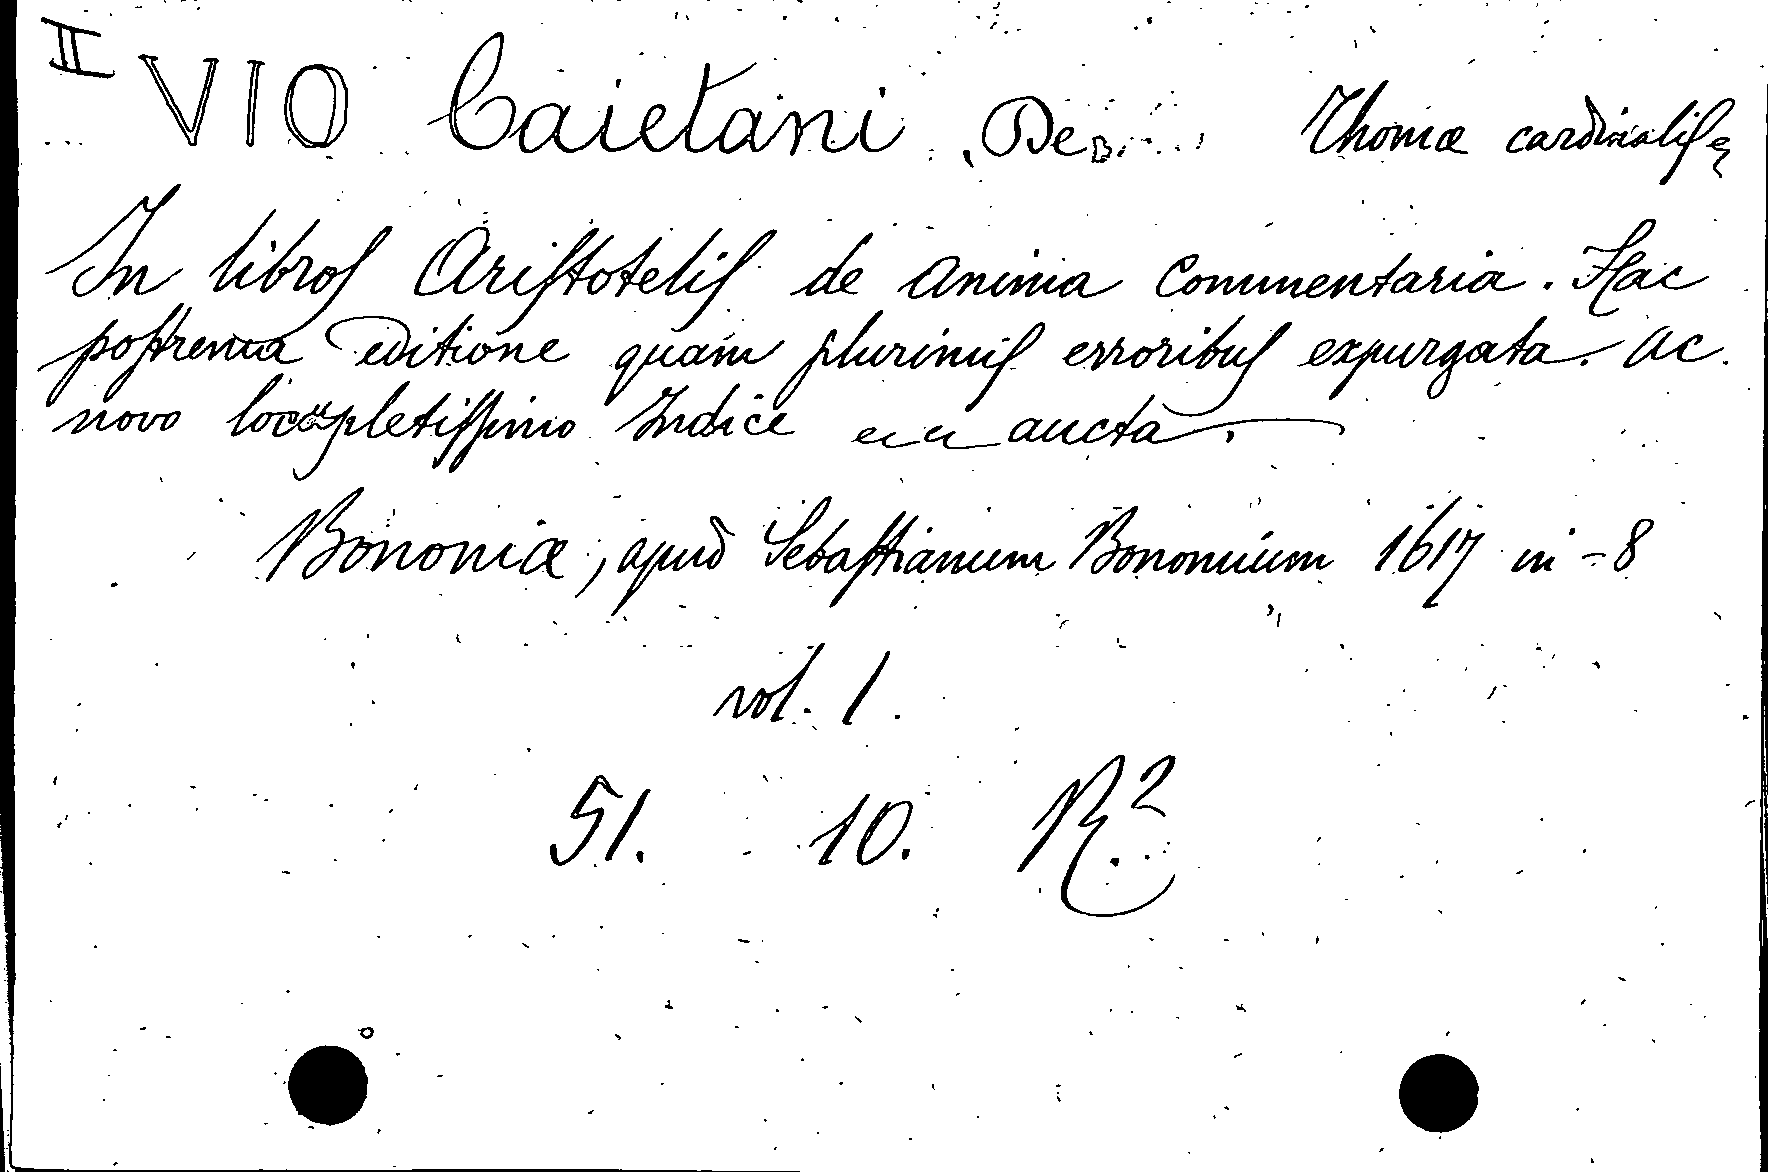 II VIO Caietani De Thomæ cardinalis
In libros Aristotelis de anima Commentaria. Hac
postrema editione quam plurimis erroribus expurgata. ac
novo locupletissimo Indice aucta.
Bononiæ, apud Sebastianum Bonomium 1617 in-8
vol. 1.
51. 10. R.2